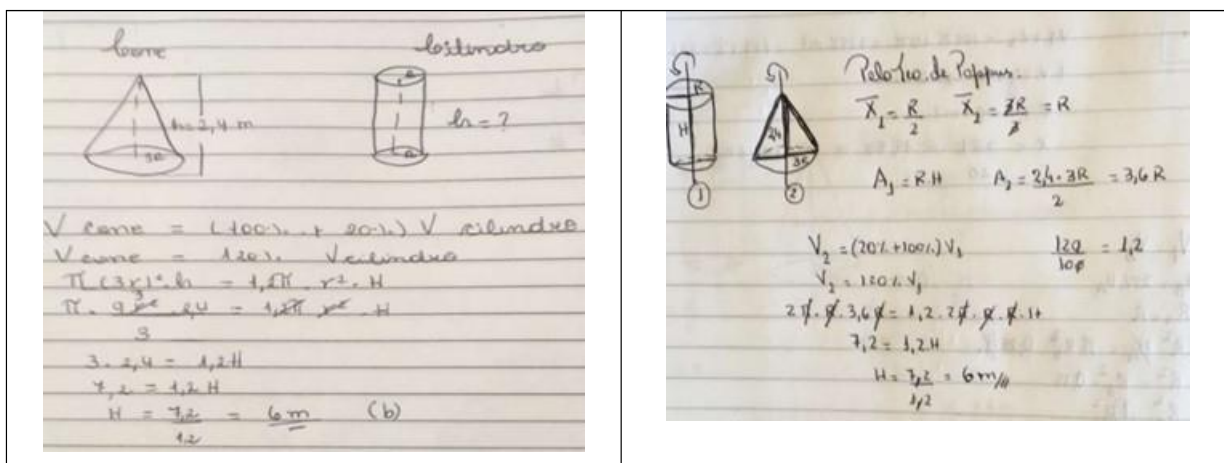 Cone
Cilindro
h = 2,4 m
3R
R
R
h = ?
V cone = (100% + 20%) V cilindro
V cone = 120% V cilindro
π (3r)². h = 1,2π . r². H
π . 9r² . 2,4 = 1,2π . r² . H
3
3
3 . 2,4 = 1,2H
7,2 = 1,2 H
H = 7,2 = 6m (b)
1,2
Pelo Teo. de Pappus.
X̄₁ = R/2 X̄₂ = 3R/3 = R
R
H
2,4
3R
1
2
A₁ = R.H A₂ = 2,4 . 3R = 3,6 R
2
V₂ = (20% + 100%) V₁ 120/100 = 1,2
V₂ = 120% V₁
2π . R . 3,6R = 1,2 . 2π . R/2 . R . H
7,2 = 1,2H
H = 7,2 = 6 m//
1,2